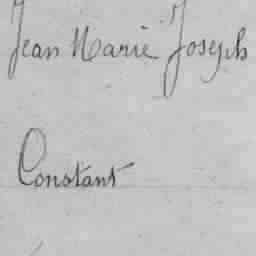 Jean Marie Joseph
Constant